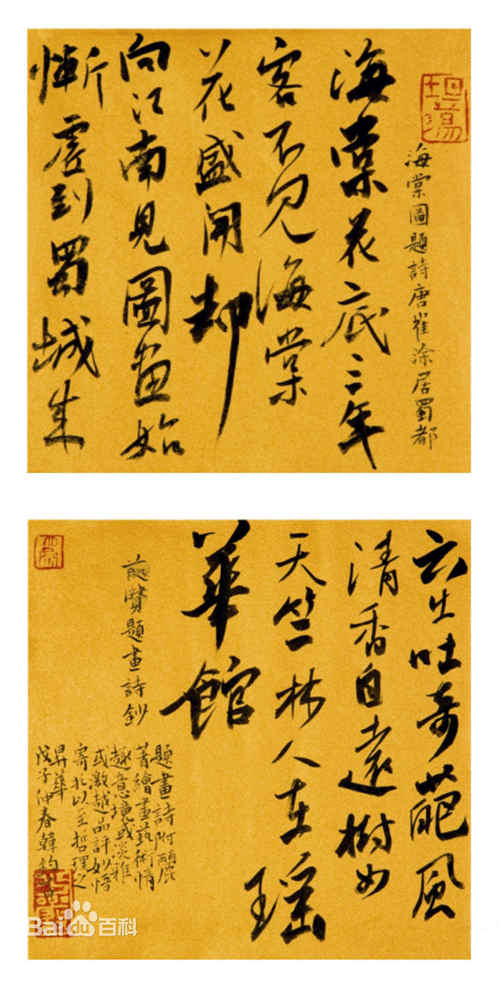 海棠圖題詩唐崔涂居蜀都
海棠花底三年
客不见海棠
花盛開却
向江南見圖畫始
慚虛到蜀城来
六出吐奇葩風
清香自遠樹如
天竺林人在瑤
華館
題畫詩鈔
題畫詩附麗
著繪畫藝術情
趣意境或淡雅
或激越品評妙悟
寄於以至哲理之
昇華
戊子仲春韓
Bai百科